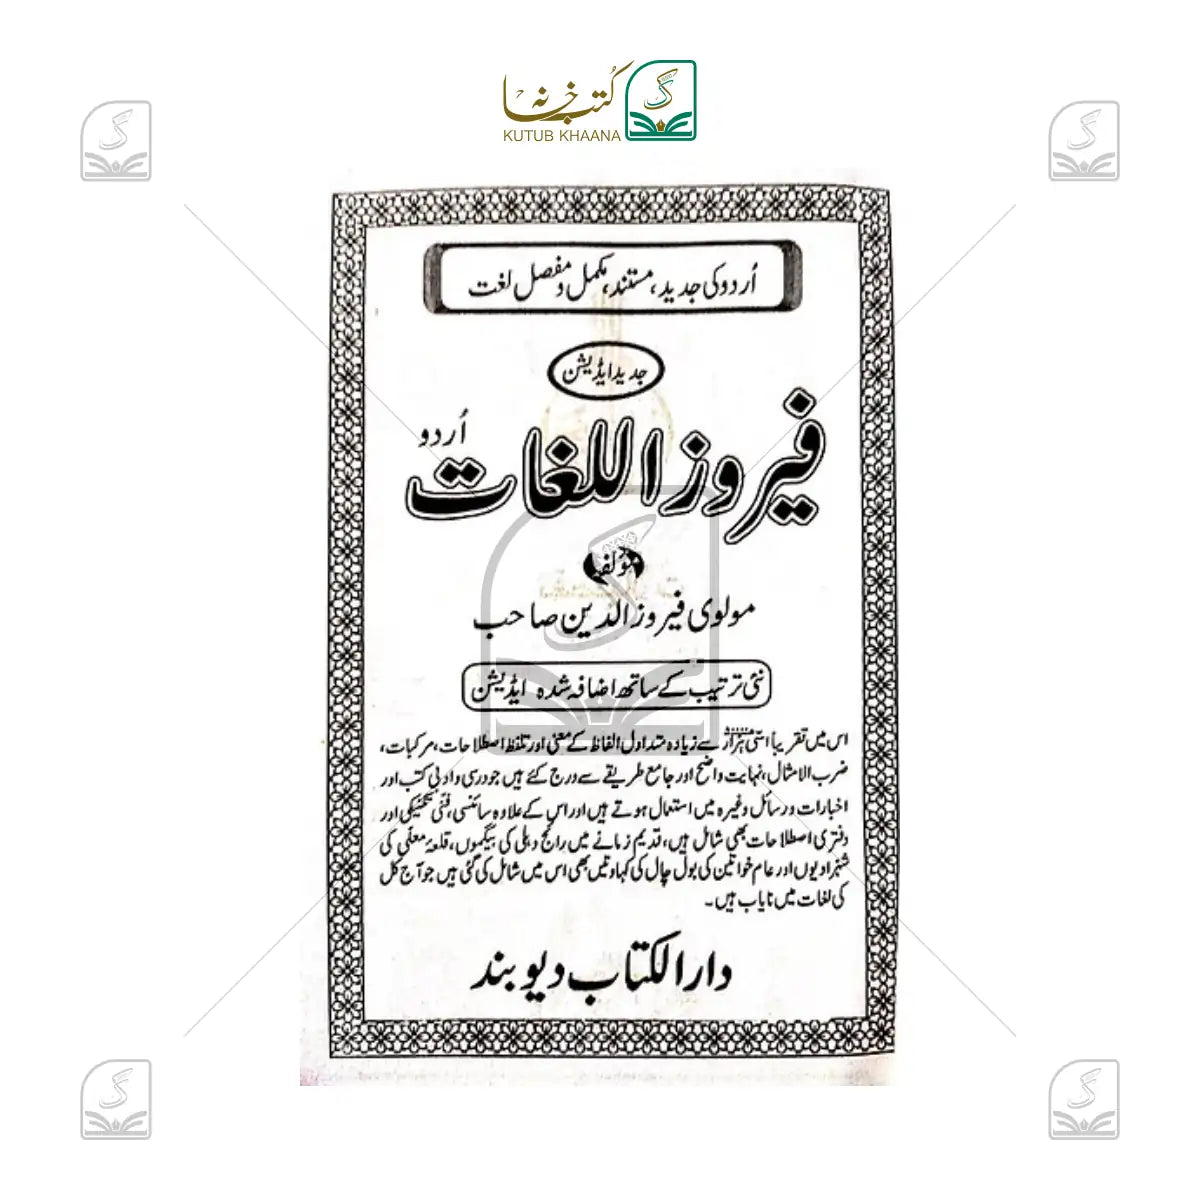 کتب خانہ
KUTUB KHAANA
اُردو کی جدید، مستند، مکمل و مفصل لغت
جدید ایڈیشن
فیروز اللغات اُردو
مؤلفہ
مولوی فیروز الدین صاحب
نئی ترتیب کے ساتھ اضافہ شدہ ایڈیشن
اس میں تقریباً اسّی ہزار سے زیادہ متداول الفاظ کے معنی اور تلفظ اصطلاحات، مرکبات،
ضرب الامثال، نہایت واضح اور جامع طریقے سے درج کئے ہیں جو درسی و ادبی کتب اور
اخبارات و رسائل وغیرہ میں استعمال ہوتے ہیں اور اس کے علاوہ سائنسی، فنی تکنیکی اور
دفتری اصطلاحات بھی شامل ہیں، قدیم زمانے میں رائج دہلی کی بیگموں، قلعۂ معلّٰی کی
شہزادیوں اور عام خواتین کی بول چال کی کہاوتیں بھی اس میں شامل کی گئی ہیں جو آج کل
کی لغات میں نایاب ہیں۔
دارالکتاب دیوبند